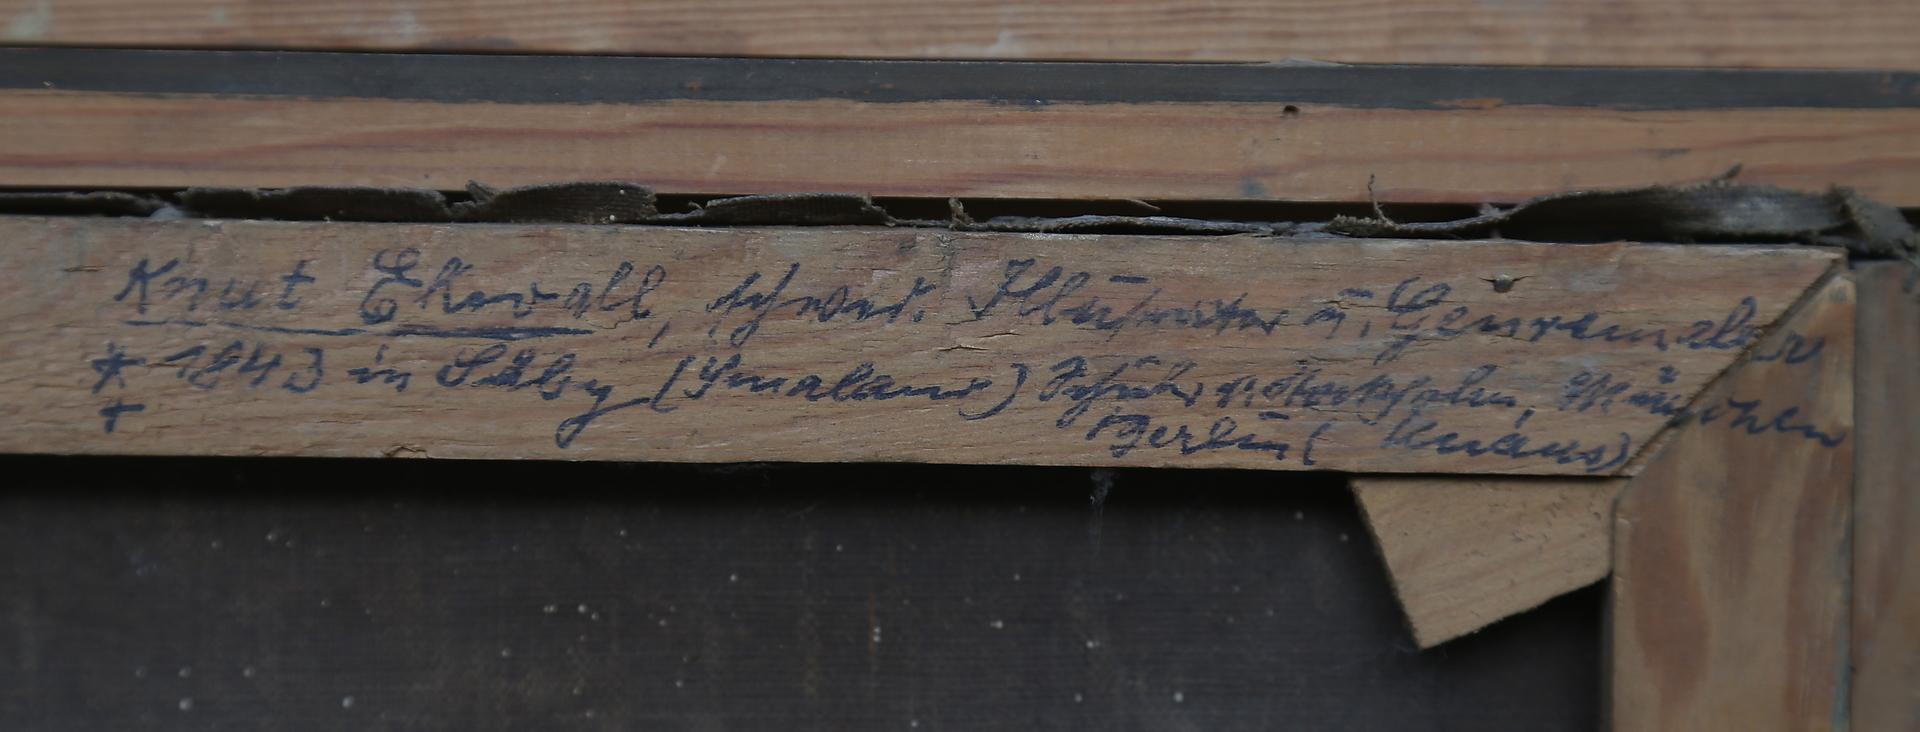 Knut Ekwall, schwed. Illustrator u. Genremaler
* 1843 in Säby (Smaland) Schüler v. Stockholm, München
+ Berlin (Knaus)